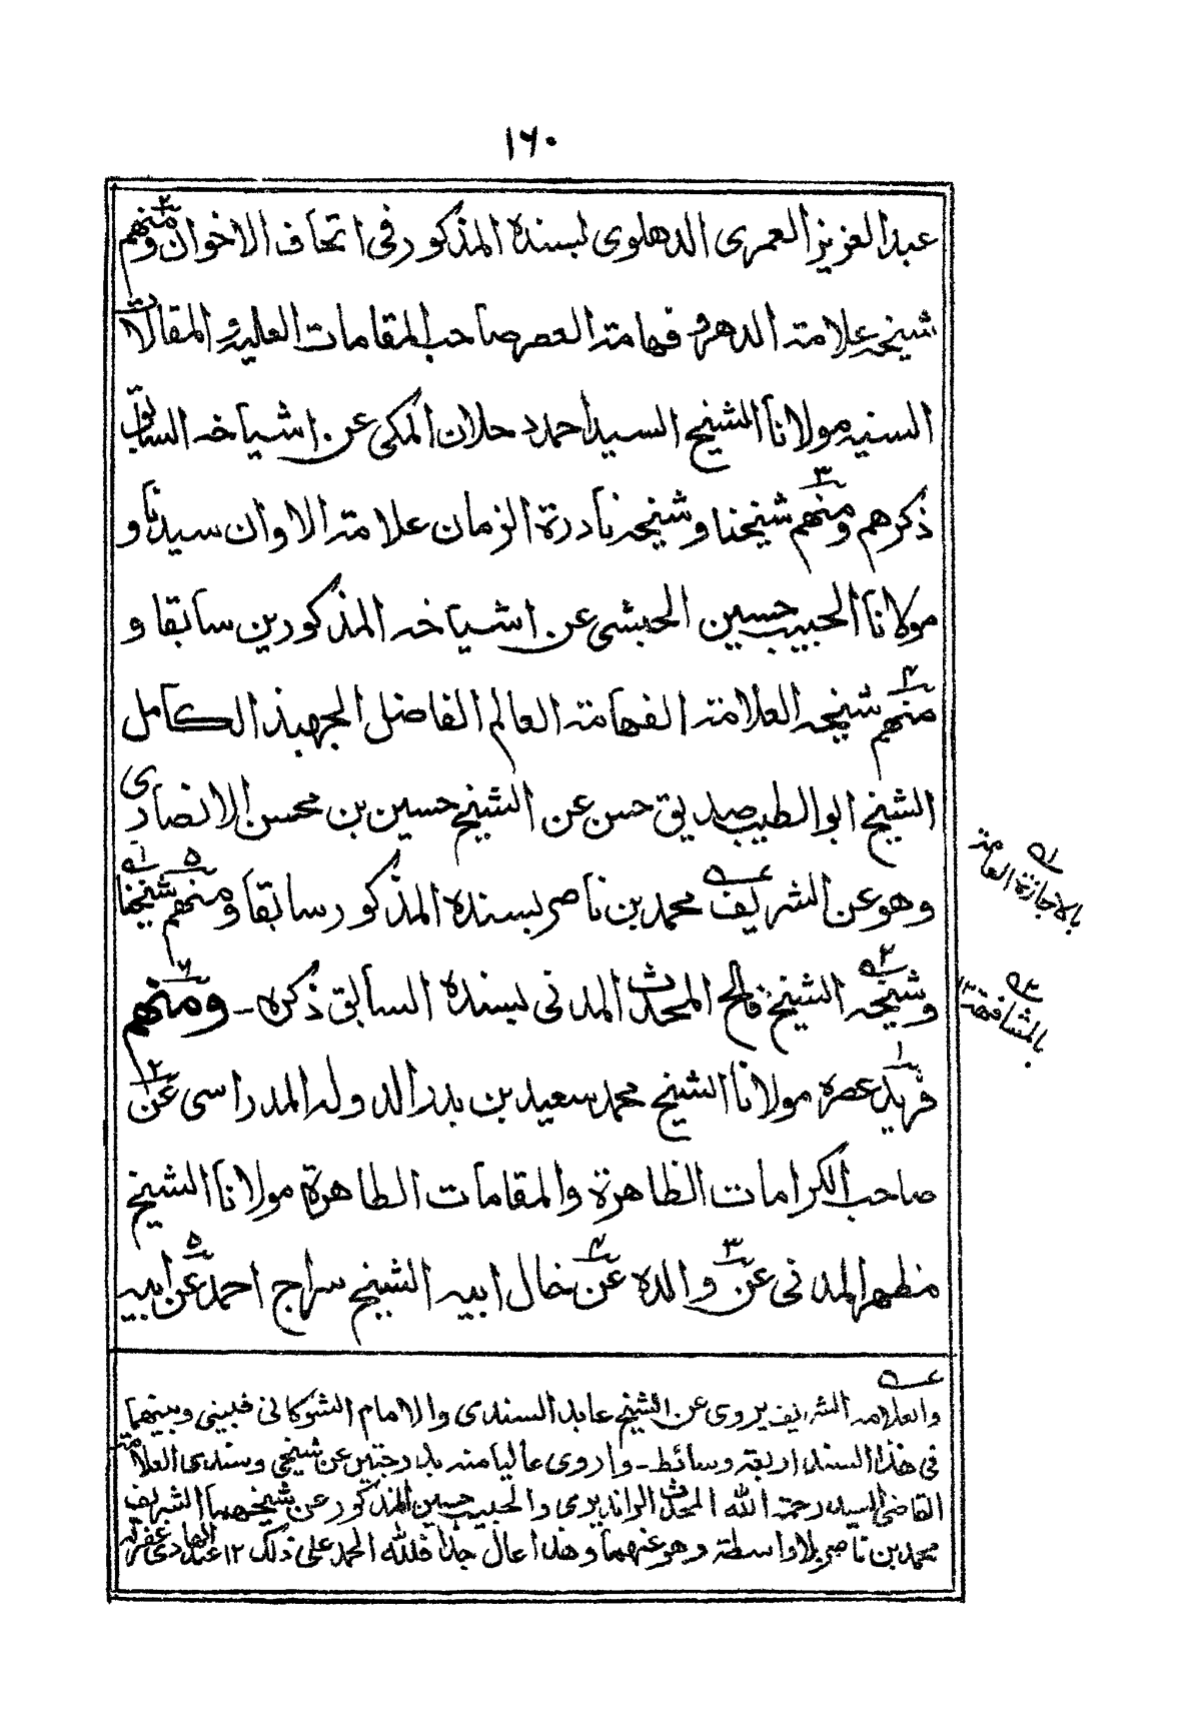 ١٦٠
عبد العزيز العمرى الدهلوى بسنده المذكور فى اتحاف الاخوان ومنهم٢
شيخه علامة الدهر وفهامة العصر صاحب المقامات العلية والمقالات
السنيه مولانا الشيخ السيد احمد دحلان المكى عن اشياخه السابق
ذكرهم ومنهم٣ شيخنا وشيخه نادرة الزمان علامة الاوان سيدنا و
مولانا الحبيب حسين الحبشى عن اشياخه المذكورين سابقا و
منهم٤ شيخه العلامة الفهامة العالم الفاضل الجهبذ الكامل
الشيخ ابو الطيب صديق حسن عن الشيخ حسين بن محسن الانصارى
وهو عن الشريف محمد بن ناصر بسنده المذكور سابقا ومنهم٥ شيخنا١
وشيخه٢ الشيخ فالح المحدث المدنى بسنده السابق ذكره ـ ومنهم٦
فريد١ عصره مولانا الشيخ محمد سعيد بن بدر الدوله المدراسى عن٢
صاحب الكرامات الظاهرة والمقامات الطاهرة مولانا الشيخ
مظهر المدنى عن٣ والده عن٤ خال ابيه الشيخ سراج احمد عن٥ ابيه
١ بالاجازة العامة
٢ بالمشافهة ١٢
والعلامه الشريف يروى عن الشيخ عابد السندى والامام الشوكانى فبينى وبينهما
فى هذا السند اربعة وسائط ـ واروى عاليا منه بدرجتين عن شيخى وسندى العلامة
القاضى السيد رحمة الله المحدث الرانديرى والحبيب حسين المذكور عن شيخهما الشريف
محمد بن ناصر بلا واسطة وهو عنهما وهذا عال جدا فلله الحمد على ذلك ١٢ عبد الهادى غفر له